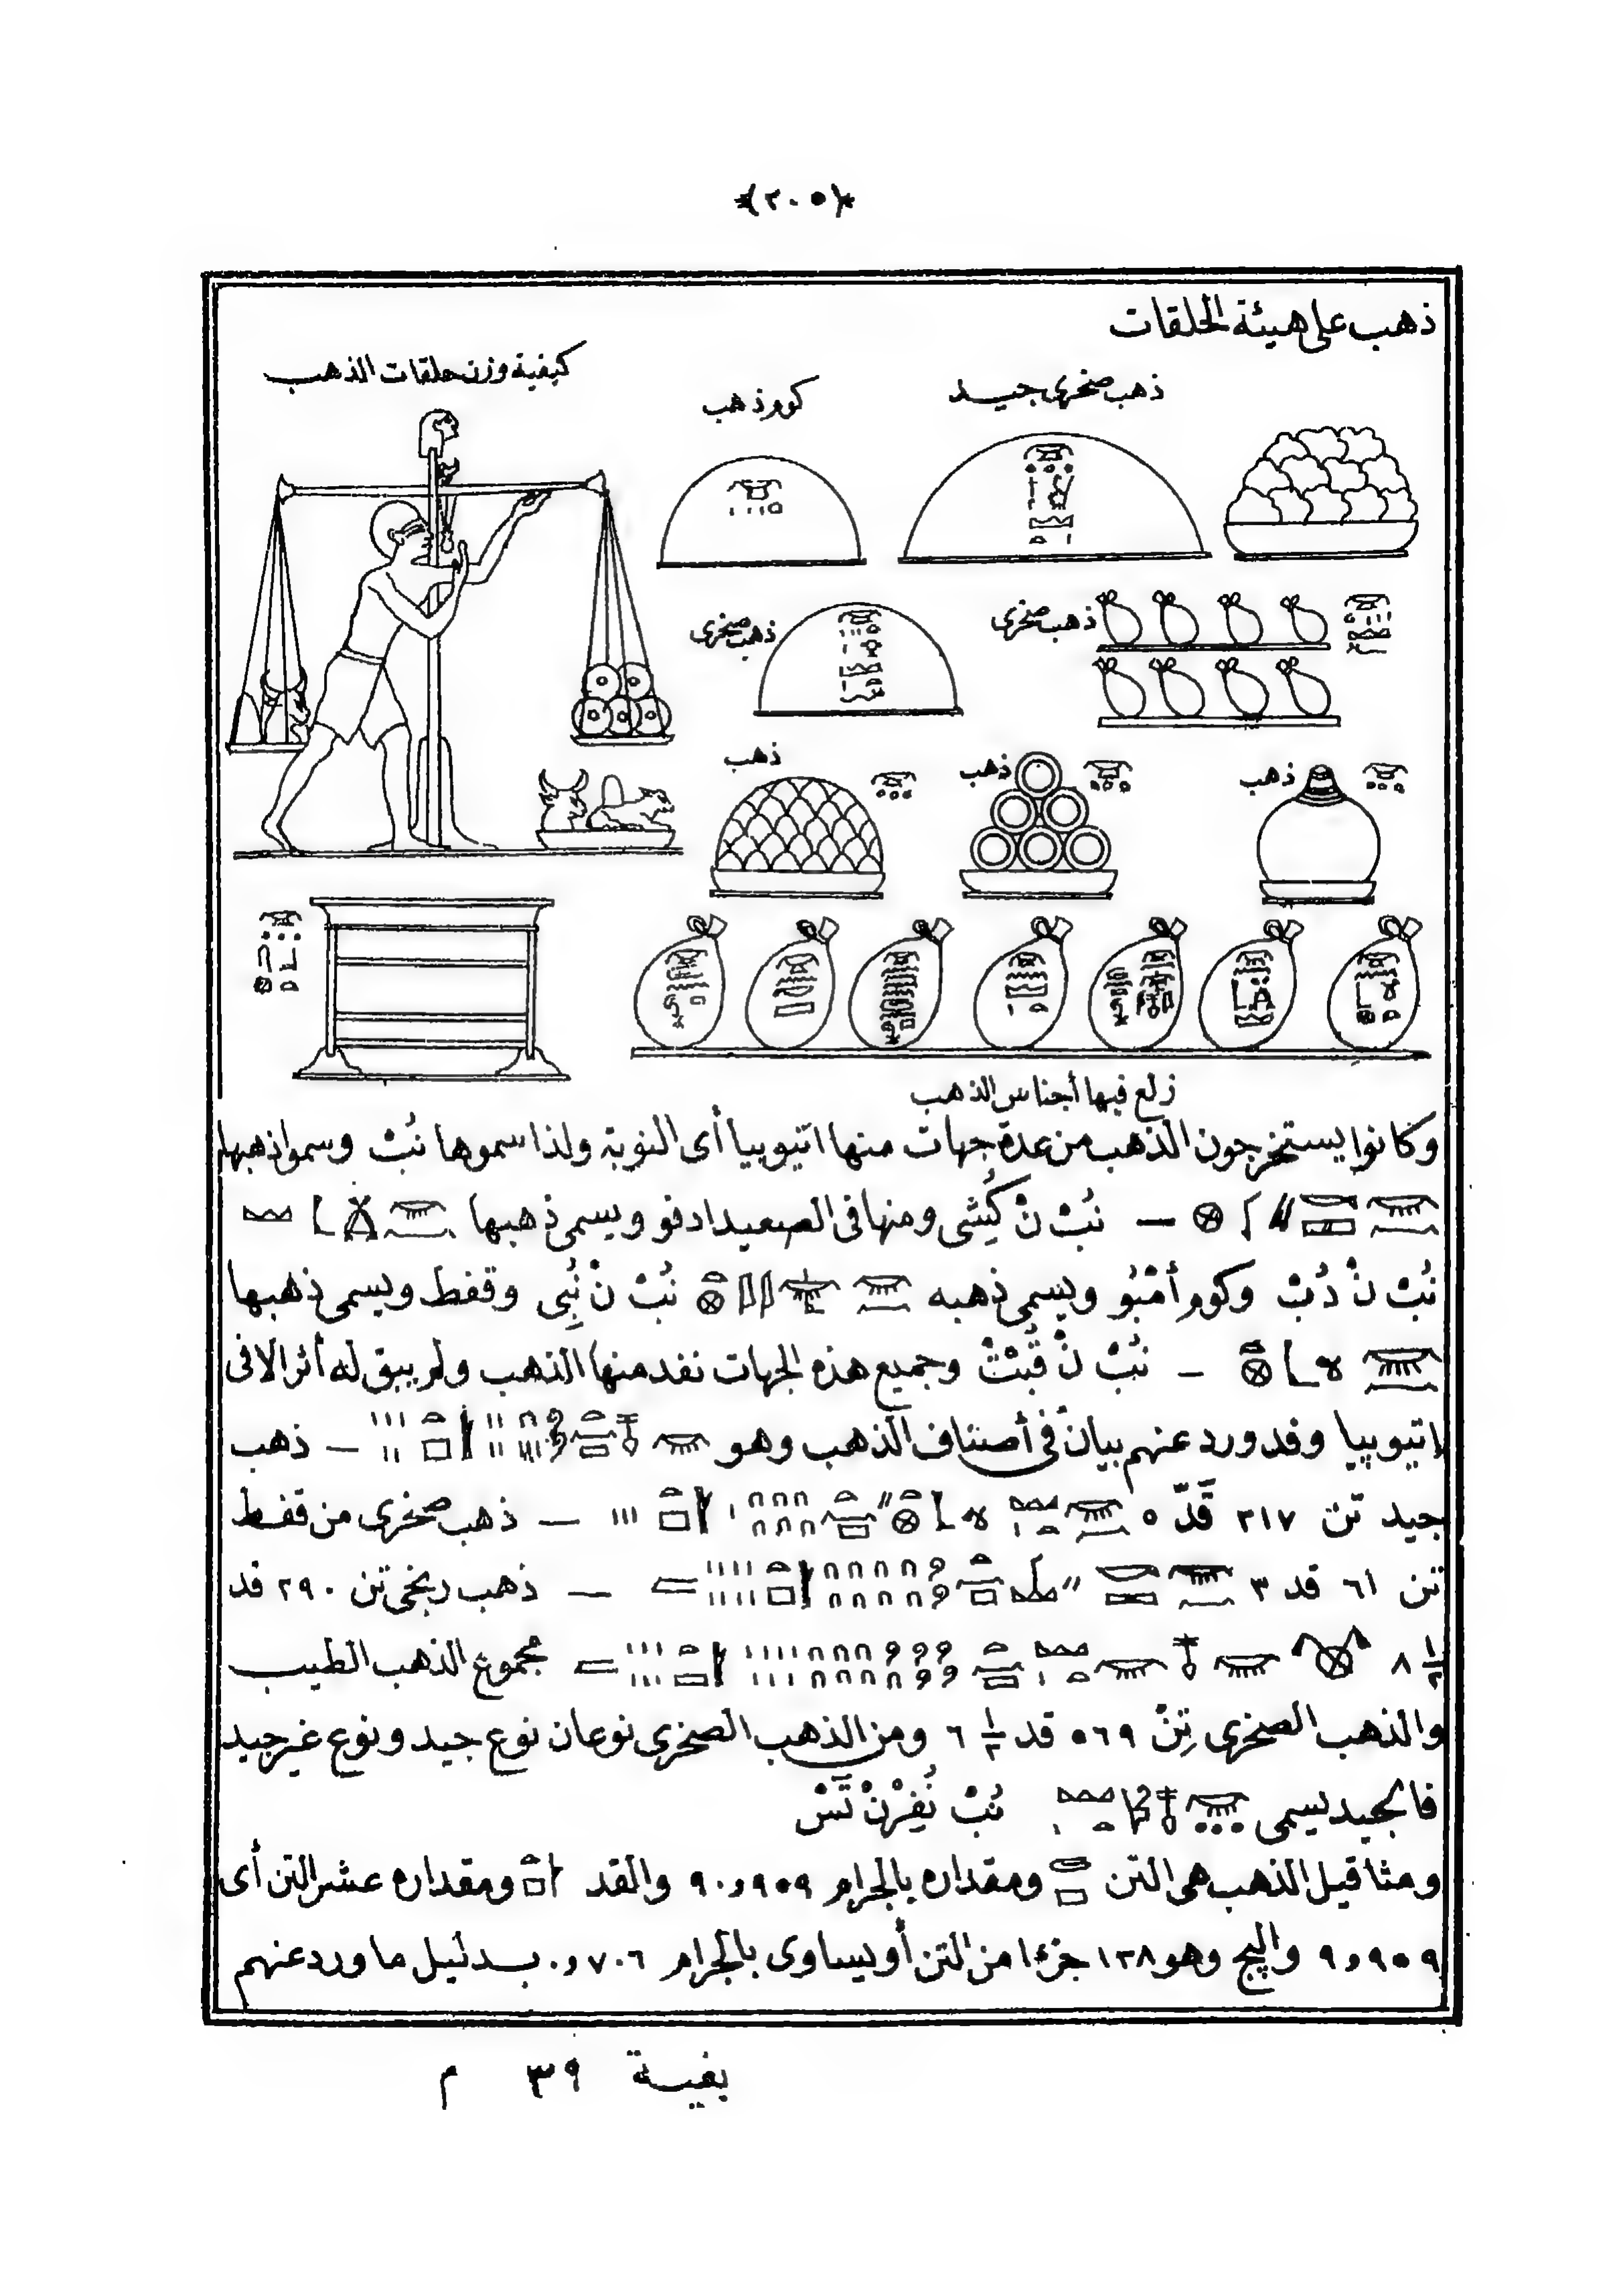 *(٢٠٥)*
ذهب على هيئة الحلقات
كيفية وزن حلقات الذهب
كوم ذهب
ذهب صخرى جيد
ذهب صخرى
ذهب صخرى
ذهب
ذهب
ذهب
زلع فيها أجناس الذهب
وكانوا يستخرجون الذهب من عدة جهات منها اتيوبيا أى النوبة ولذا سموها نُبْ وسموا ذهبها
— نُبْ نْ كِيشى ومنها فى الصعيد ادفو ويسمى ذهبها
نُبْ نْ دُبْ وكوم أمْبُو ويسمى ذهبه نُبْ نْ نُبِى وقفط ويسمى ذهبها
— نُبْ نْ قُبْتْ وجميع هذه الجهات نفد منها الذهب ولم يبق له أثر الا فى
اتيوبيا وقد ورد عنهم بيان فى أصناف الذهب وهو — ذهب
جيد تن ٣١٧ قَدّ ٥ — ذهب صخرى من قفط
تن ٦١ قد ٣ — ذهب ريخى تن ٢٩٠ قد
٨ ½ مجموع الذهب الطيب
والذهب الصخرى تِنْ ٥٦٩ قد ½ ٦ ومن الذهب الصخرى نوعان نوع جيد ونوع غير جيد
فالجيد يسمى نُبْ نُفِرْ نْ تَسْ
ومثاقيل الذهب هى التن ومقداره بالجرام ٩٠٫٩٥٩ والقد ومقداره عشر التن أى
٩٫٠٩٥٩ والپج وهو ١٢٨ جزءا من التن أو يساوى بالجرام ٠٫٧٠٦ بدليل ما ورد عنهم
بغية ٣٩ م